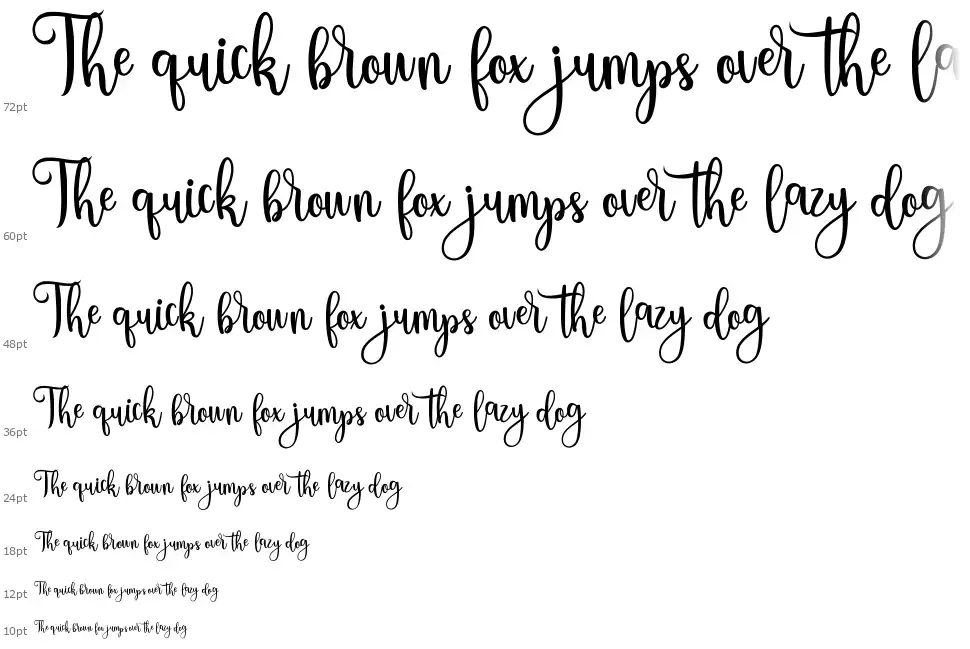 The quick brown fox jumps over the la
72pt
The quick brown fox jumps over the lazy dog
60pt
The quick brown fox jumps over the lazy dog
48pt
The quick brown fox jumps over the lazy dog
36pt
The quick brown fox jumps over the lazy dog
24pt
The quick brown fox jumps over the lazy dog
18pt
The quick brown fox jumps over the lazy dog
12pt
The quick brown fox jumps over the lazy dog
10pt